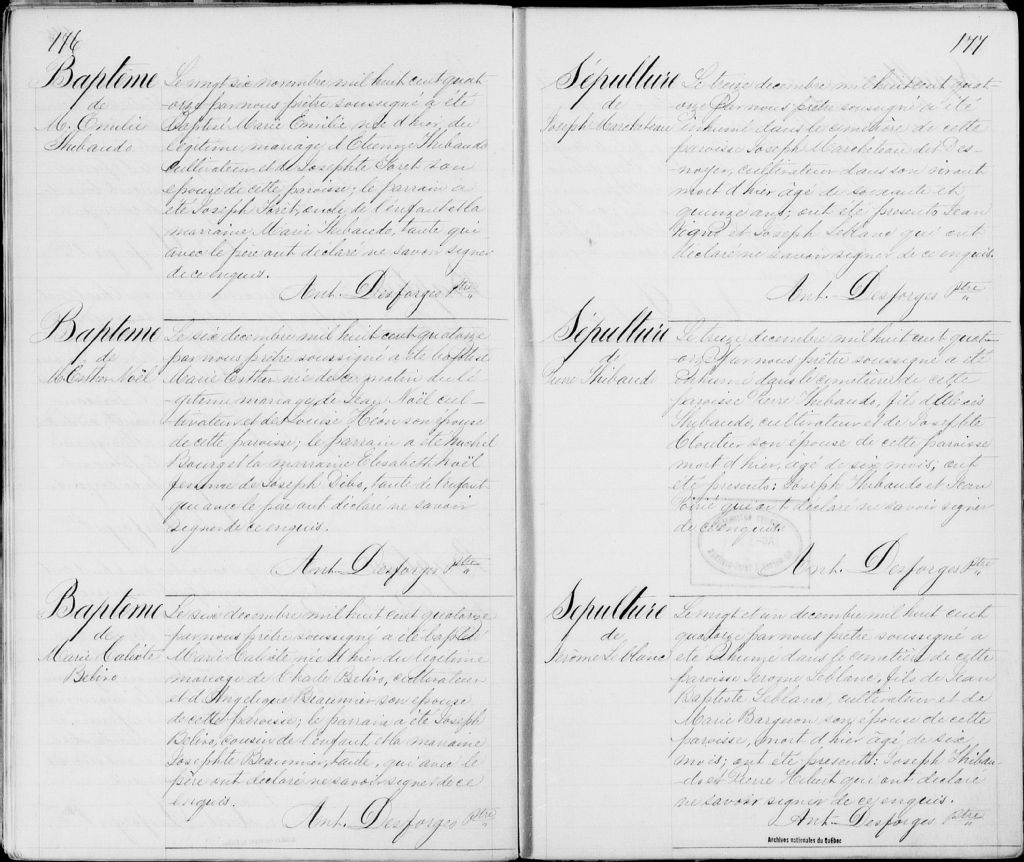 176
Baptême
de
M. Emilie
Thibaudo
Le vingt six novembre mil huit cent quat-
orze par nous prêtre soussigné a été
Baptisé Marie Emilie, née d'hier, du
légitime mariage d'Etienne Thibaudo
cultivateur et de Josephte Foret son
epouse de cette paroisse; le parrain a
été Joseph Foret, oncle de l'enfant et la
marraine Marie Thibaudo, tante qui
avec le père ont déclaré ne savoir signer
de ce enquis.
Ant. Desforges Ptre
Baptême
de
M. Esther Noël
Le six decembre mil huit cent quatorze
par nous prêtre soussigné a été baptisé
Marie Esther née de ce matin du lé-
gitime mariage de Jean Noël cul-
tivateur et de Louise Héon son epouse
de cette paroisse; le parrain a été Michel
Bourg et la marraine Elisabeth Noël
femme de Joseph tante de l'enfant
qui avec le père ont déclaré ne savoir
signer de ce enquis.
Ant. Desforges Ptre
Baptême
de
Marie Calixte
Beliro
Le six decembre mil huit cent quatorze
par nous prêtre soussigné a été baptisé
Marie Calixte née d'hier du légitime
mariage de Charle Beliro, cultivateur
et d'Angelique Beaumier son epouse
de cette paroisse; le parrain a été Joseph
Beliro, cousin de l'enfant et la marraine
Josephte Beaumier, tante, qui avec le
père ont déclaré ne savoir signer de ce
enquis.
Ant. Desforges Ptre
177
Sépulture
de
Joseph Marcheteau
Le treize decembre mil huit cent quat-
orze par nous prêtre soussigné a été
inhumé dans le cimetière de cette
paroisse Joseph Marcheteau dit Des-
noyer, cultivateur dans son vivant
mort d'hier âgé de soixante et
quinze ans; ont été presents Jean
et Joseph Leblanc qui ont
déclaré ne savoir signer de ce enquis.
Ant. Desforges Ptre
Sépulture
de
Pierre Thibaudo
Le treize decembre mil huit cent quat-
orze par nous prêtre soussigné a été
inhumé dans le cimetière de cette
paroisse Pierre Thibaudo, fils d'Alexis
Thibaudo, cultivateur et de Josephte
Cloutier son epouse de cette paroisse
mort d'hier, agé de six mois; ont
été presents: Joseph Thibaudo et Jean
qui ont déclaré ne savoir signer
de ce enquis.
Ant. Desforges Ptre
Sepulture
de
Jerôme Leblanc
Le vingt et un decembre mil huit cent
quatorze par nous prêtre soussigné a
été inhumé dans le cimetière de cette
paroisse Jerome Leblanc, fils de Jean
Baptiste Leblanc, cultivateur et de
Marie Bargnon son epouse de cette
paroisse, mort d'hier âgé de six
mois; ont été presents: Joseph Thibau-
do et Pierre Hebert qui ont déclaré
ne savoir signer de ce enquis.
Ant. Desforges Ptre
Archives nationales du Québec